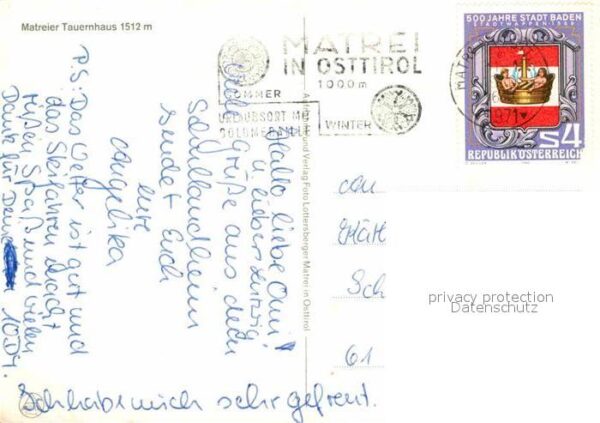 Matreier Tauernhaus 1512 m
MATREI
IN OSTTIROL
1000m
SOMMER
URLAUBSORT MIT
WINTER
500 JAHRE STADT BADEN
STADTWAPPEN 1980
S4
REPUBLIK ÖSTERREICH
MATR
9971
Hallo liebe Omi
u. lieber
Viele Grüße aus dem
Schullandheim
sendet Euch
eure
Angelika
PS: Das Wetter ist gut und
das Skifahren macht
Spaß und vielen
Dank für Deine
10 DM.
Ich habe mich sehr gefreut.
Aufnahme und Verlag Foto Lottersberger Matrei in Osttirol
an
Sch
61
privacy protection
Datenschutz